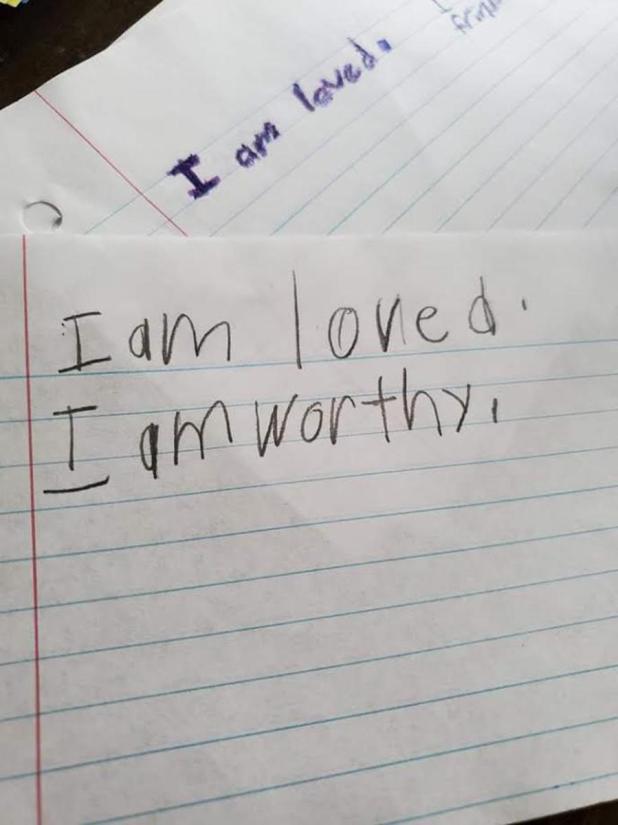 I am loved.
I am loved.
I am worthy.